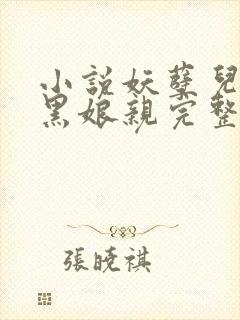 小說妖孽兒
黑娘親完整
張曉祺